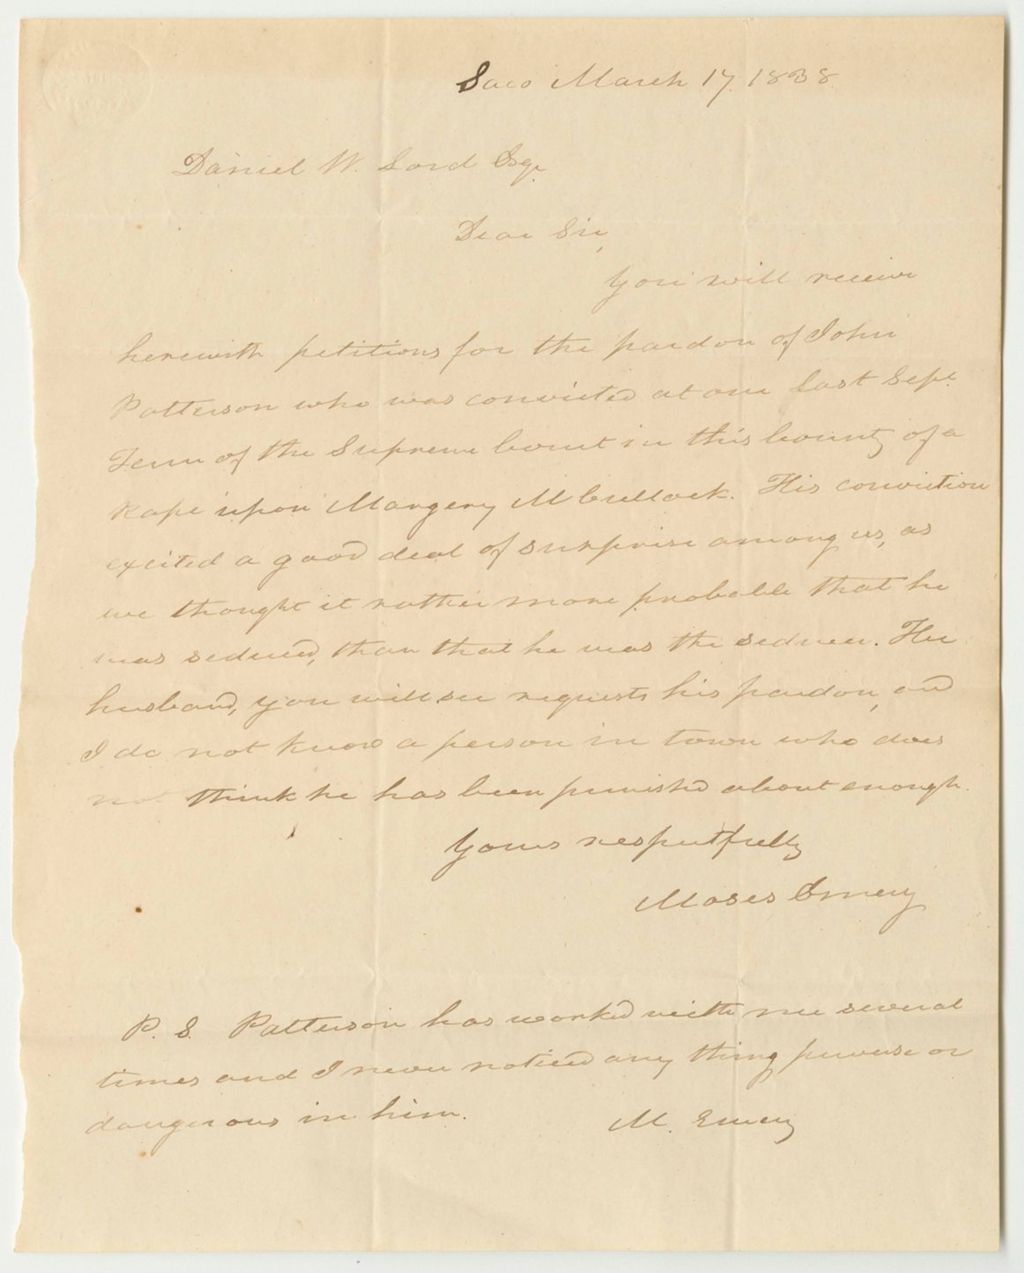 Saco March 17. 1838
Daniel W. Lord Esqr.
Dear Sir,
You will receive
herewith petitions for the pardon of John
Patterson who was convicted at our last Sept.
Term of the Supreme Court in this County of a
Rape upon Margery McCullock. His conviction
excited a good deal of surprise among us, as
we thought it rather more probable that he
was seduced, than that he was the seducer. Her
husband, you will see requests his pardon, and
I do not know a person in town who does
not think he has been punished about enough.
Yours respectfully
Moses Emery
P. S. Patterson has worked with me several
times and I never noticed any thing perverse or
dangerous in him. M. Emery